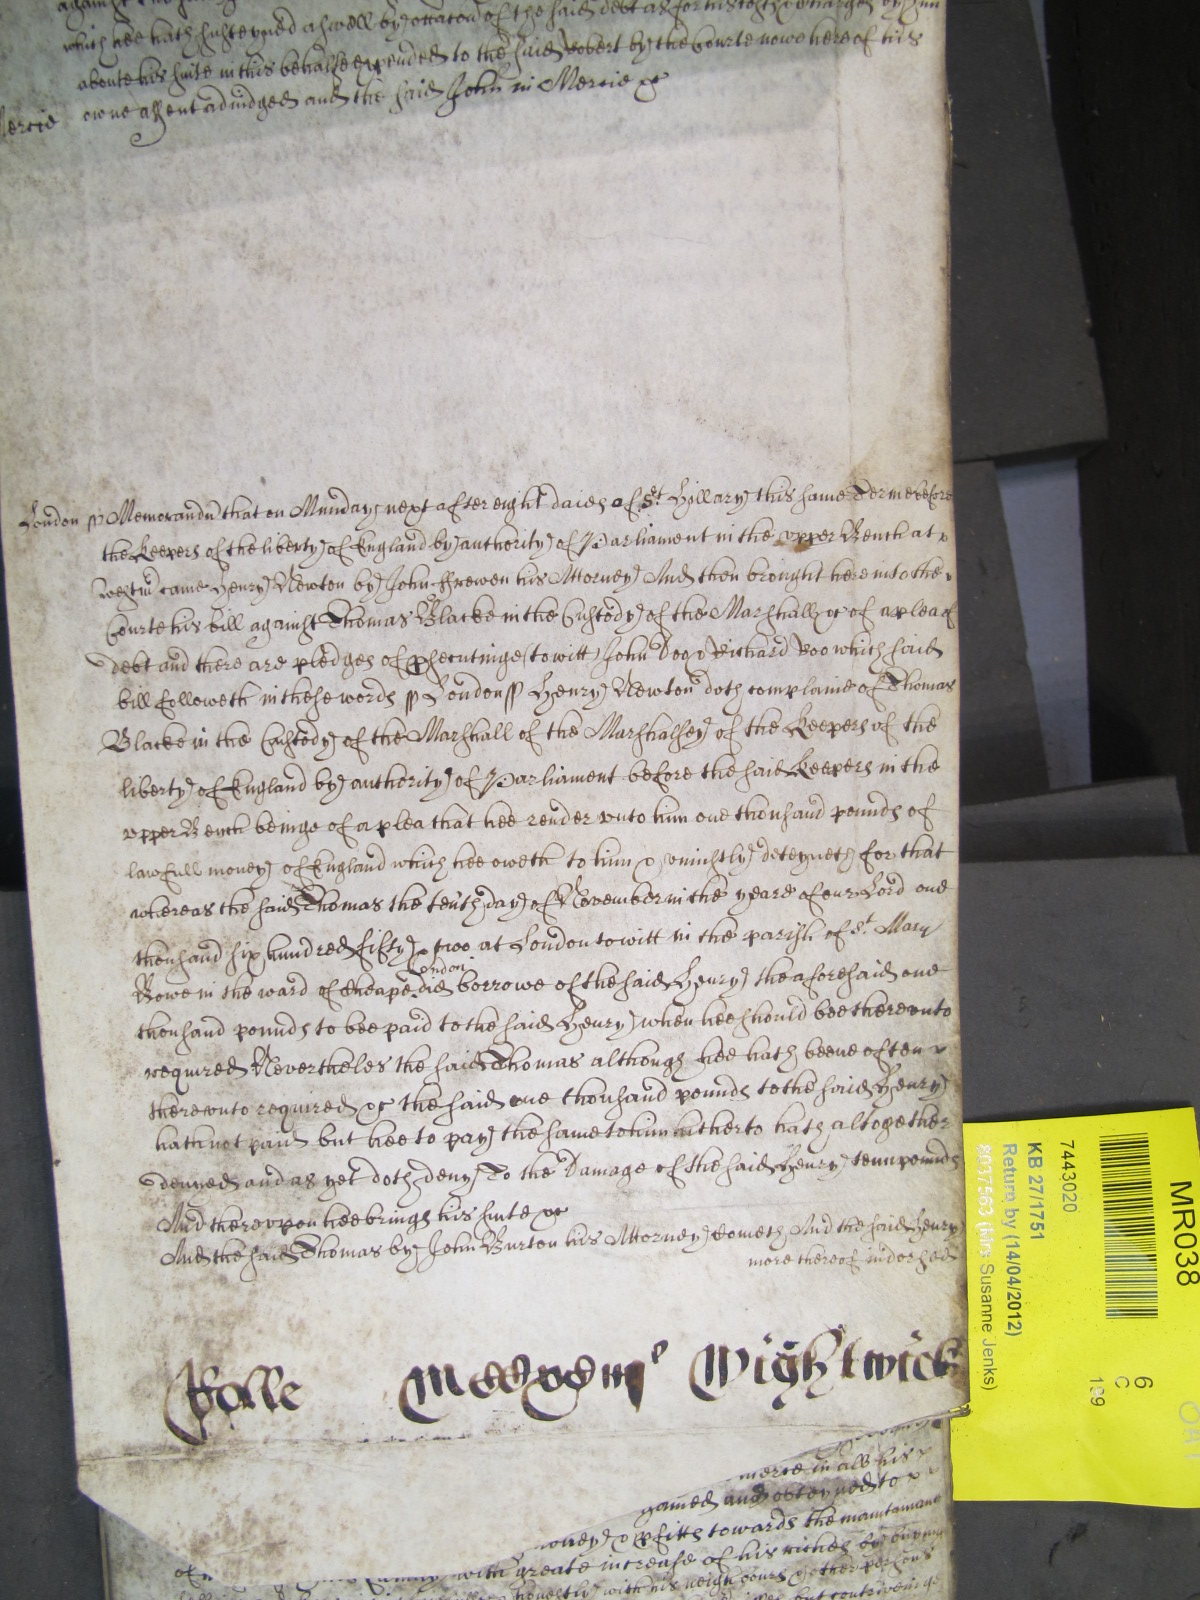 which hee hath susteyned aswell by occacon of the said debt as for his costs & charges by him
aboute his suite in this behalfe expended to the said Robert by the Courte nowe here of his
Mercie owne assent adiudged and the said John in Mercie &c
London ss Memorandu that on Munday next after eight daies of St Hillary this same Terme before
the Keepers of the liberty of England by authority of Parliament in the vpper Bench at
Westmr came Henry Newton by John Frewen his Attorney And then brought here into the
Courte his bill against Thomas Blacke in the Custody of the Marshall &c of a plea of
debt and there are pledges of prsecutinge (to witt) John Doo & Richard Roo which said
bill followeth in these words ss London ss Henry Newton doth complaine of Thomas
Blacke in the Custody of the Marshall of the Marshalsey of the Keepers of the
liberty of England by authority of Parliament before the said Keepers in the
vpper Bench beinge of a plea that hee render vnto him one thousand pounds of
lawfull money of England which hee oweth to him & vniustly deteyneth for that
whereas the said Thomas the tenth day of November in the yeare of our Lord one
thousand six hundred fifty & two at London to witt in the parish of St Mary
London
Bowe in the ward of Cheape did borrowe of the said Henry the aforesaid one
thousand pounds to bee paid to the said Henry when hee should bee therevnto
required Neverthelesse the said Thomas although hee hath beene often
therevnto required &c the said one thousand pounds to the said Henry
hath not paid but hee to pay the same to him hitherto hath altogether
denyed and as yet doth deny To the Damage of the said Henry tenn pounds
And therevpon hee brings his suite &c
And the said Thomas by John Burton his Attorney cometh And the said Henry
more thereof indorsed
Rolle Wightwick
merce in all his
gained and obteyned to
money & proffitts towards the maintainance
family with greate increase of his riches by buying
honestly with his neighbours & other persons
but contriveinge
MR038
7443020
KB 27/1751
Return by (14/04/2012)
8037563 (Mrs Susanne Jenks)
6
C
199